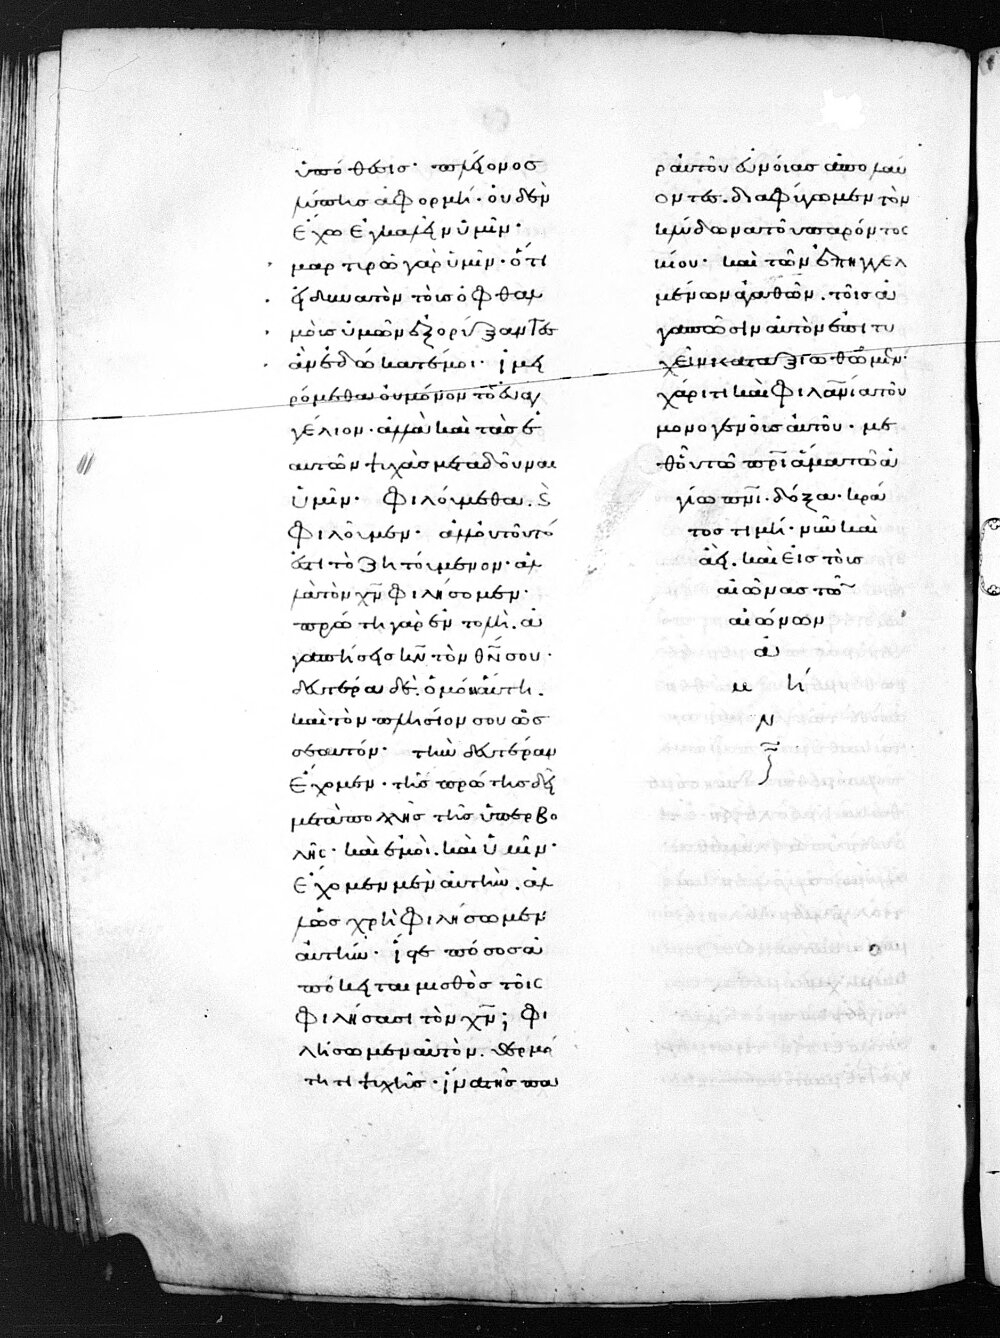 ὑπόθεσις· πλείονος
λύπης ἀφορμή· οὐδὲν
ἔχω ἐγκαλεῖν ὑμῖν·
μαρτυρῶ γὰρ ὑμῖν· ὅτι
εἰ δυνατὸν τοὺς ὀφθαλ
μοὺς ὑμῶν ἐξορύξαντες
ἂν ἐδώκατέ μοι· ἱμει
ρόμεθα οὐ μόνον τὸ εὐαγ
γέλιον· ἀλλὰ καὶ τὰς ἑ
αυτῶν ψυχὰς μεταδοῦναι
ὑμῖν· φιλούμεθα· καὶ
φιλοῦμεν· ἀλλ οὐ τοῦτό
ἐστι τὸ ζητούμενον· ἀλ
λὰ τὸν χν φιλήσωμεν·
πρώτη γὰρ ἐντολὴ· ἀ
γαπήσεις κν τὸν θν σου·
δευτέρα δὲ· ὁμοία αὐτῇ·
καὶ τὸν πλησίον σου ὡς
σεαυτόν· τὴν δευτέραν
ἔχομεν· τῆς πρώτης δεῖ
μετὰ πολλῆς τῆς ὑπερβο
λῆς· καὶ ἐμοὶ· καὶ ὑμῖν·
ἔχομεν μὲν αὐτὴν· ἀλ
λ ὡς χρὴ φιλήσωμεν
αὐτήν· ἴστε πόσος ἀ
πόκειται μισθὸς τοῖς
φιλήσασι τὸν χν; φι
λήσωμεν αὐτὸν· θερμό
τητι ψυχῆς· ἵνα τῆς πα
ρ αὐτοῦ εὐνοίας ἀπολαύ
οντες· διαφύγωμεν τὸν
κλύδωνα τοῦ παρόντος
βίου· καὶ τῶν ἐπηγγελ
μένων ἀγαθῶν· τοῖς ἀ
γαπῶσιν αὐτὸν ἐπιτυ
χεῖν καταξιωθῶμεν·
χάριτι καὶ φιλανίᾳ τοῦ
μονογενοῦς αὐτοῦ· με
θ οὗ τῷ πρὶ ἅμα τῷ ἁ
γίῳ πνι· δόξα· κρά
τος τιμή· νῦν καὶ
ἀεὶ· καὶ εἰς τοὺς
αἰῶνας τῶν
αἰώνων
ἀ
μ ή
ν